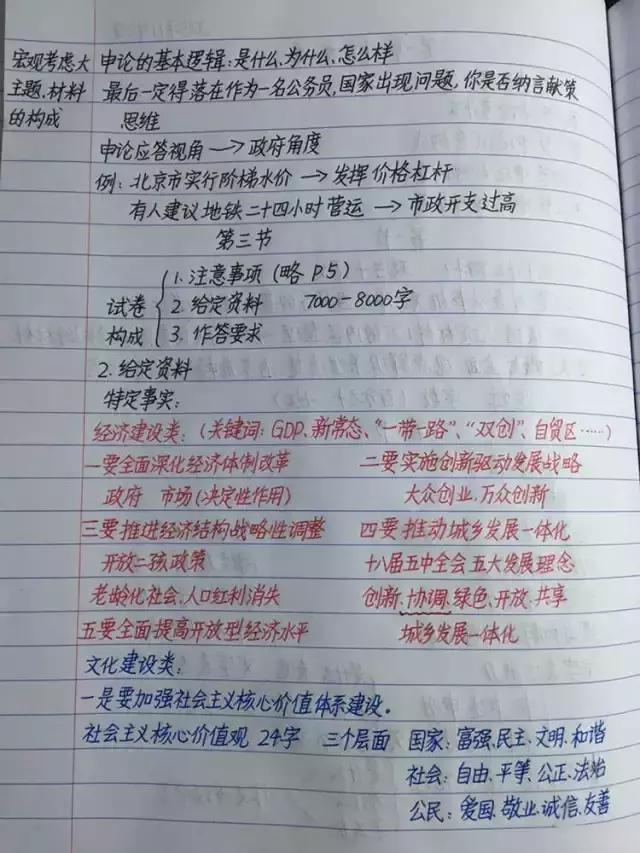 宏观考虑大 申论的基本逻辑:是什么、为什么、怎么样
主题、材料 最后一定得落在作为一名公务员,国家出现问题,你是否纳言献策
的构成 思维
申论应答视角→政府角度
例:北京市实行阶梯水价→发挥价格杠杆
有人建议地铁二十四小时营运→市政开支过高
第三节
1. 注意事项(略 P5)
试卷 2. 给定资料 7000-8000字
构成 3. 作答要求
2. 给定资料
特定事实:
经济建设类:(关键词:GDP、新常态、“一带一路”、“双创”、自贸区……)
一要全面深化经济体制改革 二要实施创新驱动发展战略
政府 市场(决定性作用) 大众创业,万众创新
三要推进经济结构战略性调整 四要推动城乡发展一体化
开放二孩政策 十八届五中全会五大发展理念
老龄化社会、人口红利消失 创新、协调、绿色、开放、共享
五要全面提高开放型经济水平 城乡发展一体化
文化建设类:
一是要加强社会主义核心价值体系建设。
社会主义核心价值观 24字 三个层面 国家:富强、民主、文明、和谐
社会:自由、平等、公正、法治
公民:爱国、敬业、诚信、友善